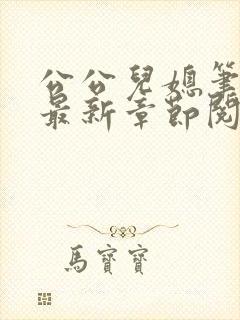 公公兒媳筆
最新章節閱
馬寶寶